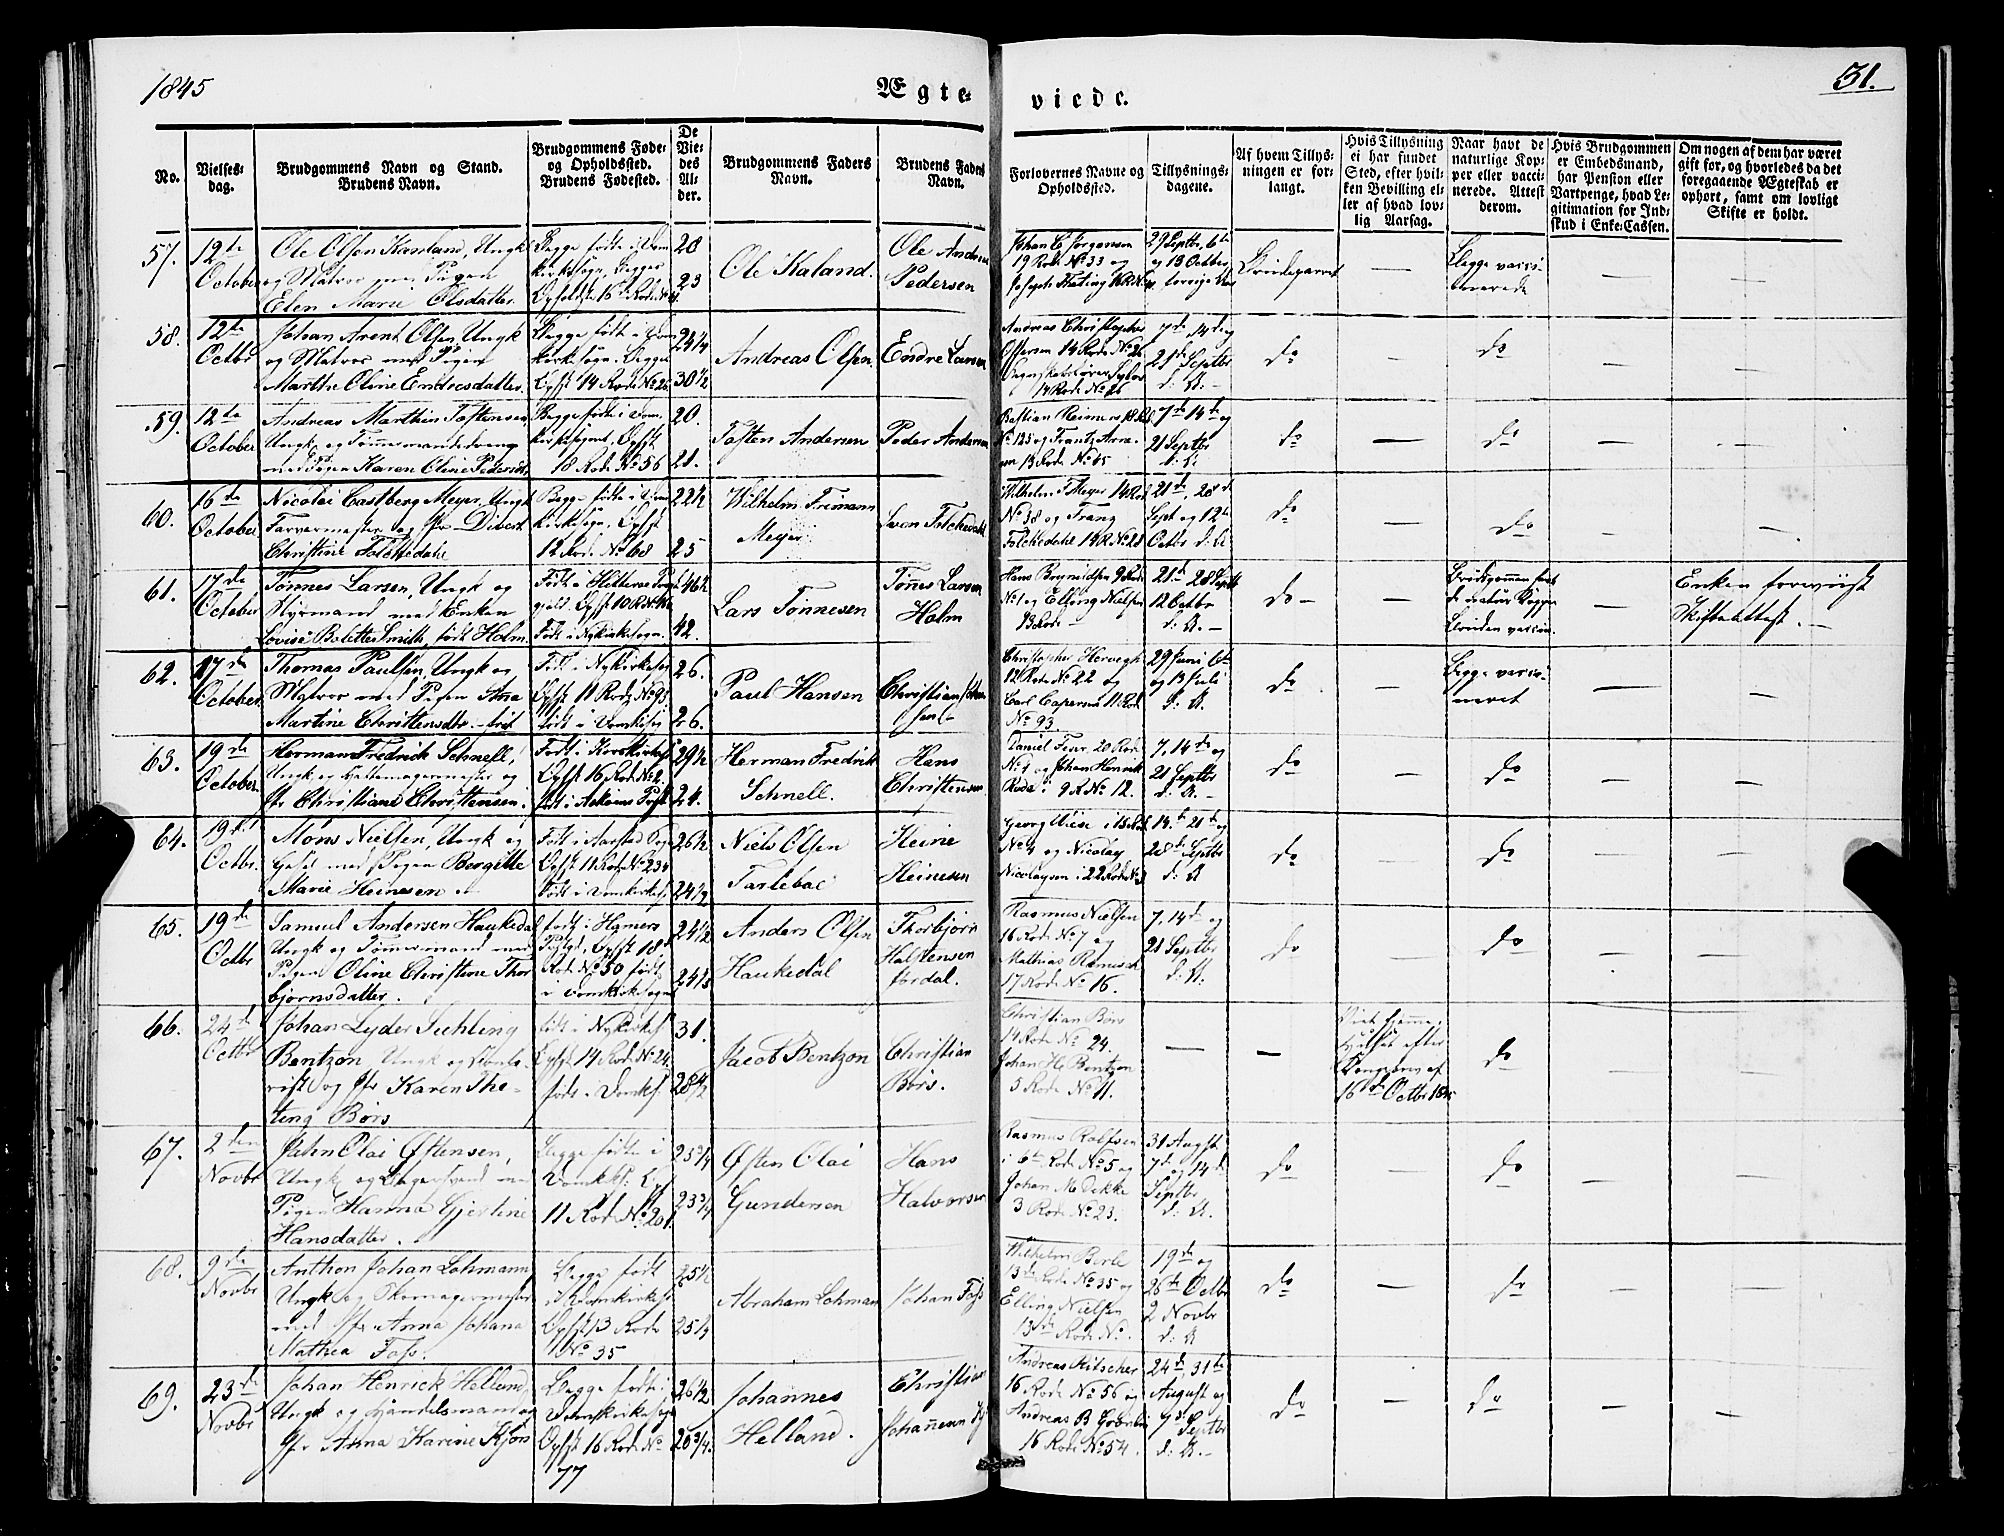 1845
Ægte-
viede.
31.
No.
Vielses-
dag.
Brudgommens Navn og Stand.
Brudens Navn.
Brudgommens Føde-
og Opholdssted.
Brudens Fødested.
De
Vie-
des
Al-
der.
Brudgommens Faders
Navn.
Brudens Faders
Navn.
Forlovernes Navne og
Opholdssted.
Tillysnings-
dagene.
Af hvem Tillys-
ningen er for-
langt.
Hvis Tillysning
ei har fundet
Sted, efter hvil-
ken Bevilling el-
ler af hvad lov-
lig Aarsag.
Naar havt de
naturlige Kop-
per eller vacci-
nerede. Attest
derom.
Hvis Brudgommen
er Embedsmand,
har Pension eller
Vartpenge, hvad Le-
gitimation for Ind-
skud i Enke-Cassen.
Om nogen af dem har været
gift før, og hvorledes da det
foregaaende Ægteskab er
ophørt, samt om lovligt
Skifte er holdt.
57.
12te
October
Ole Olsen Kaaland, Ungk
og Matros med Pigen
Elen Marie Olsdatter
Begge fødte i Dom
kirkesogn, Begges
28
23
Ole Kaland.
Ole Andreas
Pedersen
Johan C Jørgensen
19 Rode No 33 og
29 Septbr, 6te
og 13 Octbr
Brudeparret
—
Begge vacci-
nerede
—
—
58.
12te
Octbr
Johan Arent Olsen, Ungk
og Matros med Pigen
Marthe Oline Endresdatter
Begge fødte i Dom
kirkesogn. Begge
Opst 14 Rode No 26
24 1/4
30 1/2
Andreas Olsen
Endre Larsen
Andreas Christopher
14 Rode No 26
14 Rode No 26
7de, 14de og
21de Septbr
d: A. -
do
—
do
—
—
59.
12te
October
Andreas Marthin Tostensen
Ungk og Tømmermandsdreng
med Pigen Karen Oline Pedersdtr
Begge fødte i Dom-
kirkesognet, Opst
18 Rode No 56
20.
21.
Tosten Andersen
Peder Andersen
Bastian Reimers 18 Rode
No 125 og Frantz Arne-
sen 13 Rode No 65
7de 14de og
21 Septbr
d: A
do
—
do
—
—
60.
16de
October
Nicolai Castberg Meyer, Ungk
Farvermester og Jfr Divert
Christine Folckedahl
Begge fødte i Dom
kirkesogn, Opst
12 Rode No 68
22 1/2
25
Wilhelm Frimann
Meyer
Sven Folckedahl
Wilhelm F Meyer 14 Rod
No 38 og Frans
Folckedahl 14 R No 28
21de, 28de
Sept og 12te
Octbr d: A
do
—
do
—
—
61.
17de
October
Tønnes Larsen, Ungk og
Styrmand med Enken
Lovise Bolette Smith, født Holm
Født i Hitterøe Præst
gjeld. Opst 10 R No
Født i Nykirkesogn.
46 1/2
42.
Lars Tønnesen
Tønes Larsen
Holm
Hans Brynildsen 9 Rode
No 1 og Elling Nielsen
13 Rode -
21de 28 Septb
12 Octbr
d: A. -
do -
—
Brudgommen havt
de naturl Kopper
Bruden vaccin.
—
Enken foreviist
Skifteattest. —
62.
17de
October
Thomas Paulsen, Ungk og
Matros med Pigen Ana
Martine Christensdtr
Født i Nykirkesog
Opst 11 Rode No 93
født i Domkirkesog
26.
26.
Paul Hansen
Christian Johan
sen -
Christopher Herwegh
12 Rode No 22 og
Carl Caspersen 11 Rod
No 93
29 Juni 6te
og 13 Juli
d: A.
do
—
Begge vacci-
neret
—
—
63.
19de
October
Herman Fredrik Schnell,
Ungk og Hattemagermester og
Jfr Christiane Christensen
Født i Korskirkes
Opst 16 Rode No 2.
født i Askøens Præst
29 1/2
24.
Herman Fredrik
Schnell.
Hans
Christensen
Daniel Feur, 20 Rod
No 4 og Johan Henrik
Rode i 9 R No 12.
7, 14de og
21 Septbr
d: A. -
do
—
do
—
—
64.
19de
Octbr.
Mons Nielsen, Ungk og
Gesel med Pigen Bergitte
Marie Heinesen
Født i Aarstad Præst
Opst 11 Rode No 234
Født i Domkirkesog
26 1/2
24 1/2
Niels Olsen
Tarlebøe
Heine
Heinesen
Georg Wiese i 15 Rod
No 4 og Nicolay
Nicolaysen i 22 Rode No 3
14de 21de og
28de Septbr
d: A
do
—
do
—
—
65.
19de
Octbr
Samuel Andersen Haukedal
Ungk og Tømmermand med
Pigen Oline Christine Thor
bjørnsdatter.
født i Hammers
Præstgj, Opst 18de
Rode No 50 født
i Domkirkesogn
24 1/2
24 1/3
Anders Olsen
Haukedal
Thorbjørn
Halstensen
Jordal.
Rasmus Nielsen
16 Rode No 7 og
Mathias Ramisch
17 Rode No 16.
7, 14de og
21 Septbr
d: A.
do
—
do
—
—
66.
24de
Octbr
Johan Lyder Suhling
Bentzon, Ungk og
og Jfr Karen The-
ting Børs
født i Nykirkes
Opst 14 Rode No 24.
født i Domks.
31.
28 1/2
Jacob Bentzon
Christian
Børs.
Christian Børs
14 Rode No 24.
Johan H. Bentzon
5 Rode No 11.
—
—
Viet hjemme i
Huset efter
af
16de Octbr 1845
do
67.
2den
Novbr
John Olai Østensen,
Ungk og med
Pigen Hanna Gjertine
Hansdatter.
Begge fødte i
Domks: Op
11 Rode No 201.
25 3/4
23 3/4
Østen Olai
Gundersen
Hans
Halvorsen
Rasmus Rolfsen
i 6te Rode No 5 og
Johan M Dekke
3 Rode No 23.
31 August
7de og 14de
Septbr
d: A.
do
—
do
—
—
68.
9de
Novbr
Anthon Johan Lohmann
Ungk og Skomagermester
med Jfr Anna Johana
Mathea Fass.
Begge født
i Domkirkes
Opst 13 Rode
No 35
25 1/2
25 1/4
Abraham Lohman
Johan Fass
Wilhelm Berle
13de Rode No 35 og
Elling Nielsen
13de Rode No.
19de og
26de Octbr
2 Novbr
d: A
do
—
do
—
—
69.
23de
Novbr
Johan Henrick Helland,
Ungk og Handelsmand og
Jfr Anna Karine Kjøs
Begge fødte i
Domkirkesogn
Opst 16 Rode No
77
26 1/2
20 3/4.
Johannes
Helland.
Christian
Johanesen
Andreas Ritscher
16 Rode No 56 og
Andreas B Grønbec
16 Rode No 54.
24de, 31te
August og
7de Septbr
d: A. -
do
—
do
—
—